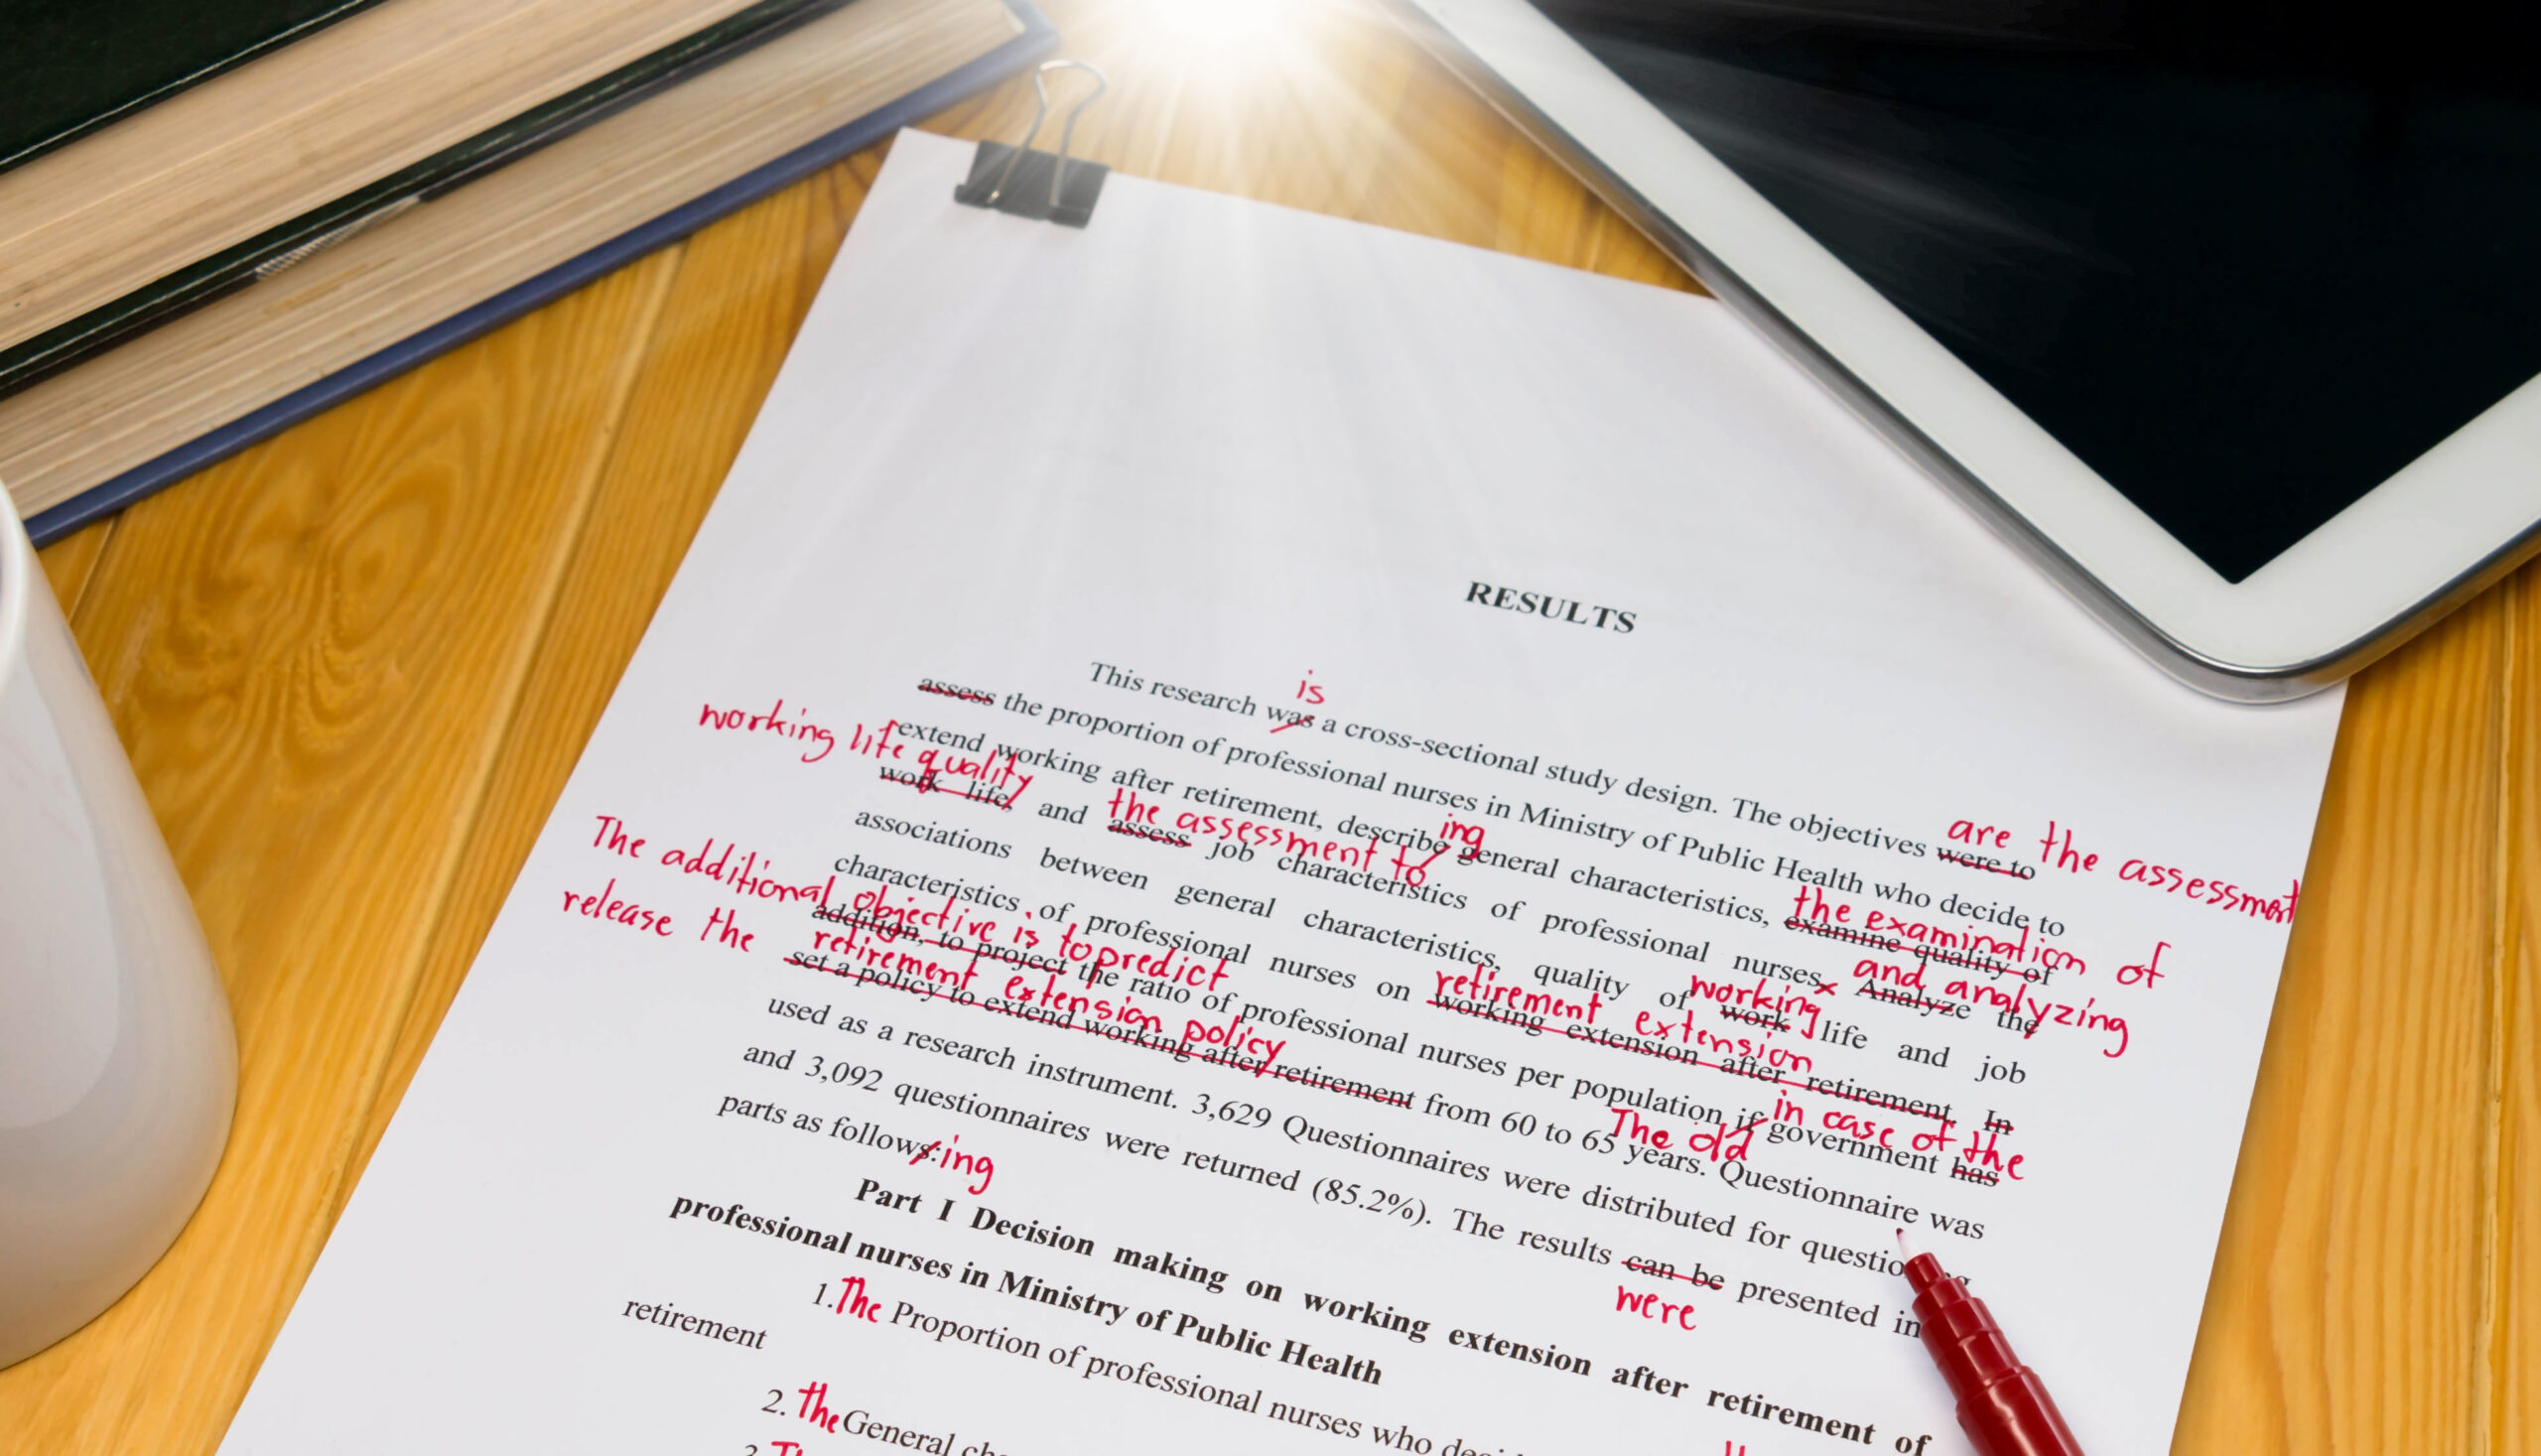 RESULTS
is
This research was a cross-sectional study design. The objectives were to
are the assessment
assess the proportion of professional nurses in Ministry of Public Health who decide to
ing
extend working after retirement, describe general characteristics, examine quality of
the examination of
working life quality
the assessment to
work life, and assess job characteristics of professional nurses. Analyze the
and analyzing
working
associations between general characteristics, quality of work life and job
retirement extension
characteristics of professional nurses on working extension after retirement. In
The additional objective is to predict
in case of the
addition, to project the ratio of professional nurses per population if government has
release the retirement extension policy
The old
set a policy to extend working after retirement from 60 to 65 years. Questionnaire was
used as a research instrument. 3,629 Questionnaires were distributed for
and 3,092 questionnaires were returned (85.2%). The results can be presented in
were
parts as follows: ing
Part I Decision making on working extension after retirement of
professional nurses in Ministry of Public Health
1. The Proportion of professional nurses who
retirement
2. The General
3.